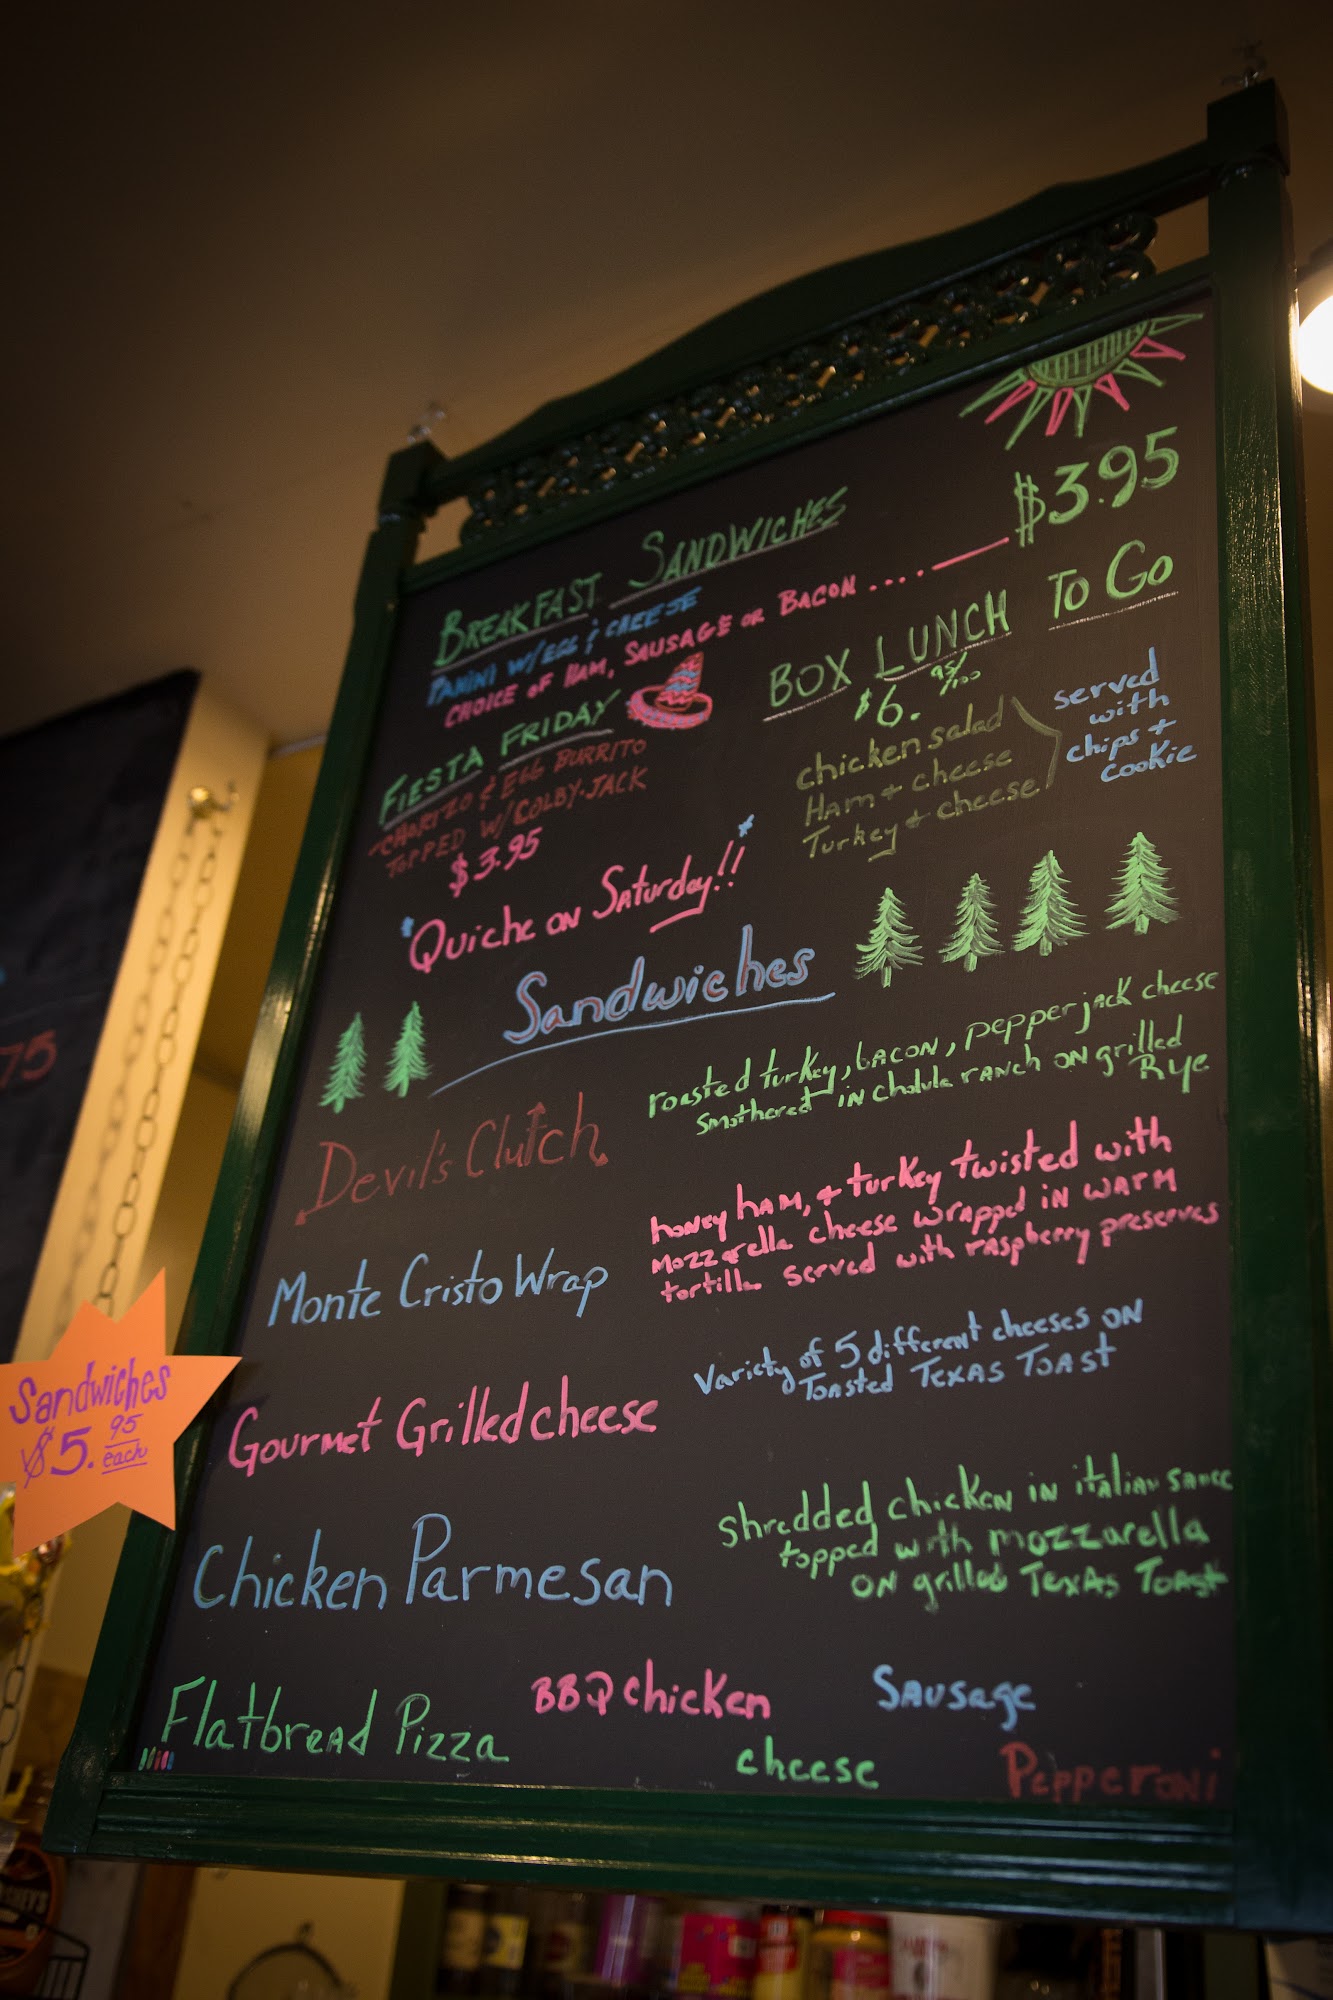 $3.95
BREAKFAST SANDWICHES
PANINI W/EGG & CHEESE
CHOICE OF HAM, SAUSAGE OR BACON ....
FIESTA FRIDAY
CHORIZO & EGG BURRITO
TOPPED W/COLBY-JACK
$3.95
BOX LUNCH TO GO
$6. 95/100
chicken salad
Ham + cheese
Turkey + cheese
served
with
chips +
cookie
*Quiche on Saturday!!*
Sandwiches
Devil's Clutch
roasted turkey, bacon, pepperjack cheese
smothered in cholula ranch on grilled
Rye
Monte Cristo Wrap
honey ham, + turkey twisted with
mozzarella cheese wrapped in warm
tortilla served with raspberry preserves
Gourmet Grilled cheese
Variety of 5 different cheeses on
Toasted Texas Toast
Chicken Parmesan
shredded chicken in italian sauce
topped with mozzarella
on grilled Texas Toast
Flatbread Pizza
BBQ chicken
Sausage
cheese
Pepperoni
Sandwiches
$5. 95
each
75